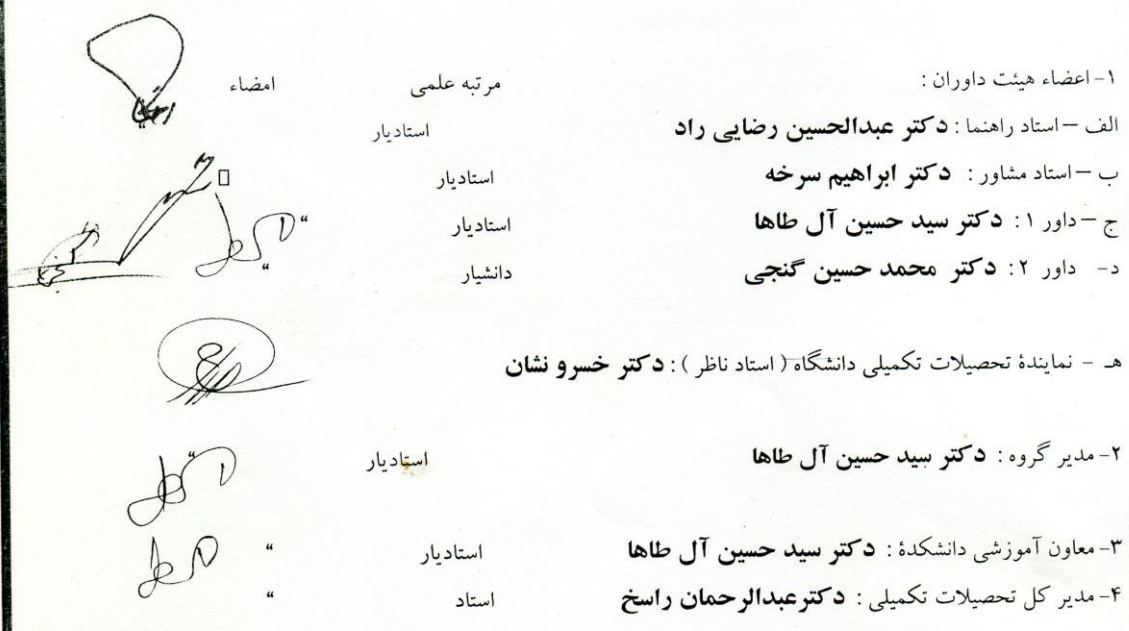 ۱- اعضاء هیئت داوران : مرتبه علمی امضاء
الف – استاد راهنما : دکتر عبدالحسین رضایی راد استادیار
ب – استاد مشاور : دکتر ابراهیم سرخه استادیار
ج – داور ۱ : دکتر سید حسین آل طاها استادیار “
د- داور ۲ : دکتر محمد حسین گنجی دانشیار “
هـ - نمایندۀ تحصیلات تکمیلی دانشگاه ( استاد ناظر ) : دکتر خسرو نشان
۲- مدیر گروه : دکتر سید حسین آل طاها استادیار “
۳- معاون آموزشی دانشکدۀ : دکتر سید حسین آل طاها استادیار “
۴- مدیر کل تحصیلات تکمیلی : دکترعبدالرحمان راسخ استاد “